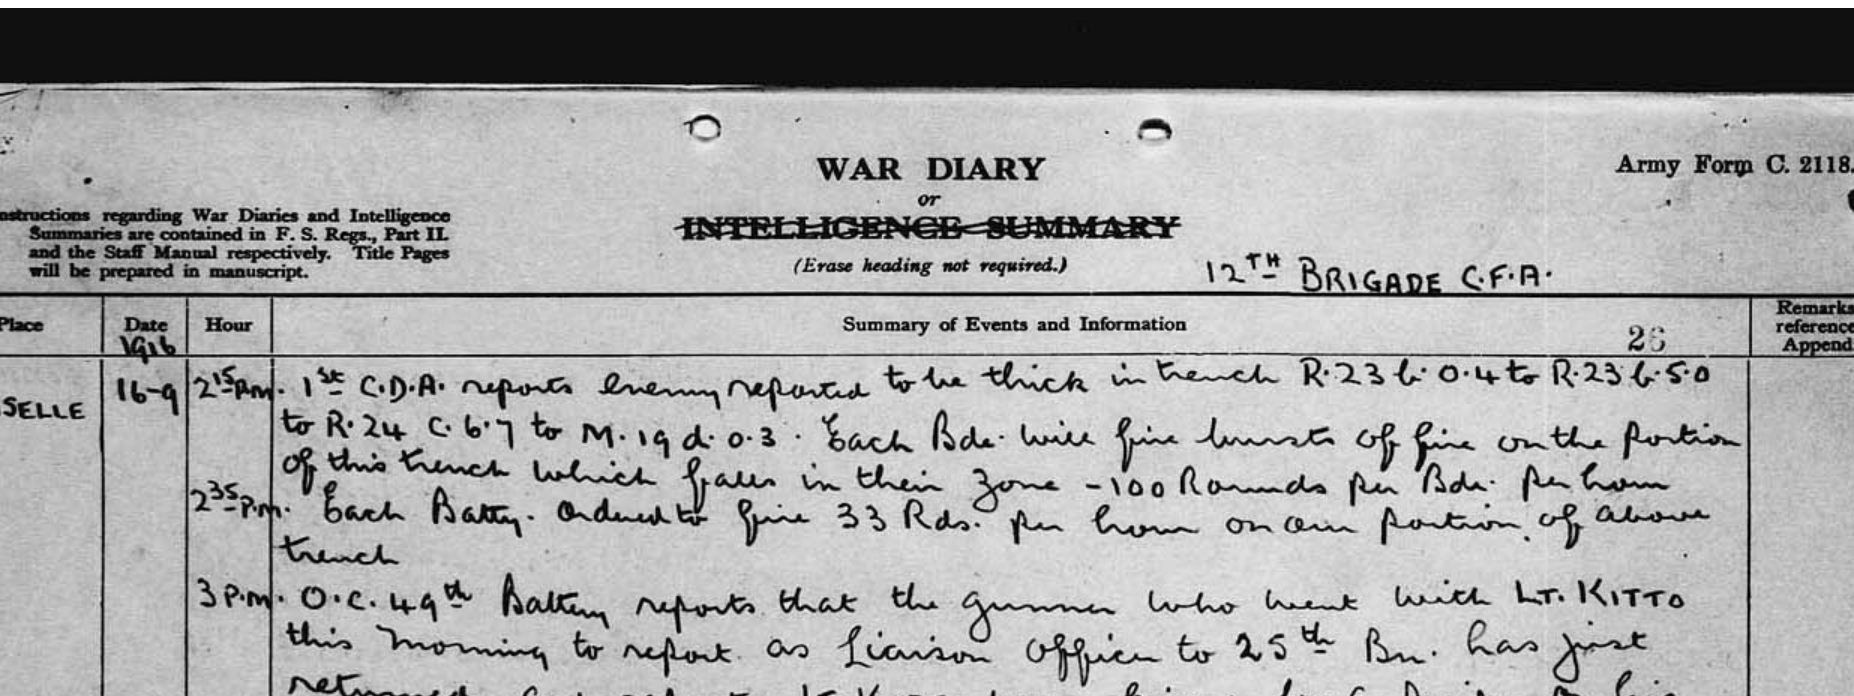 WAR DIARY
or
INTELLIGENCE SUMMARY
(Erase heading not required.)
Army Form C. 2118.
nstructions regarding War Diaries and Intelligence
Summaries are contained in F. S. Regs., Part II.
and the Staff Manual respectively. Title Pages
will be prepared in manuscript.
12TH BRIGADE C.F.A.
Place Date Hour Summary of Events and Information Remarks
reference
Append
1916
26
SELLE 16-9 2 15 P.m. 1st C.D.A. reports enemy reported to be thick in trench R.23 b. 0.4 to R.23 b. 5.0
to R.24 C. 6.7 to M.19 d. 0.3. Each Bde. will fire bursts of fire on the portion
of this trench which falls in their zone - 100 Rounds per Bde. per hour
2 35 P.m. Each Batty. ordered to fire 33 Rds. per hour on our portion of above
trench
3 P.m. O.C. 49th Battery reports that the gunner who went with LT. KITTO
this morning to report as Liaison Officer to 25th Bn. has just
returned